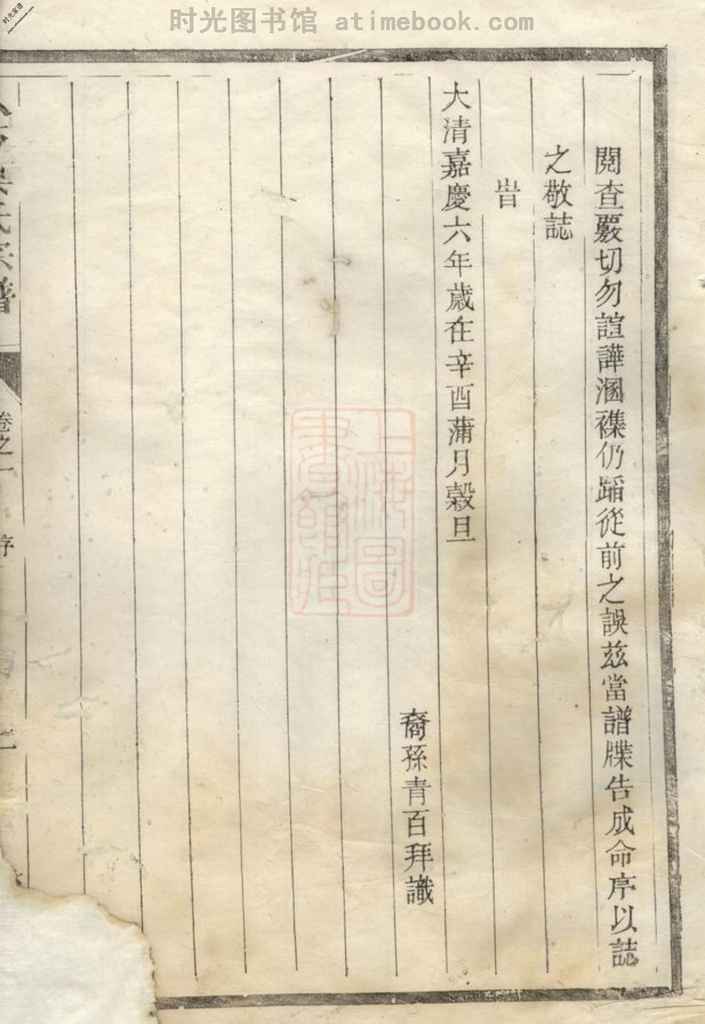 时光图书馆 atimebook.com
閱查覈切勿諠譁溷襍仍蹈從前之誤茲當譜牒告成命序以誌
之敬誌
旹
大清嘉慶六年歲在辛酉蒲月穀旦
裔孫青百拜識
氏宗譜
卷之一
序